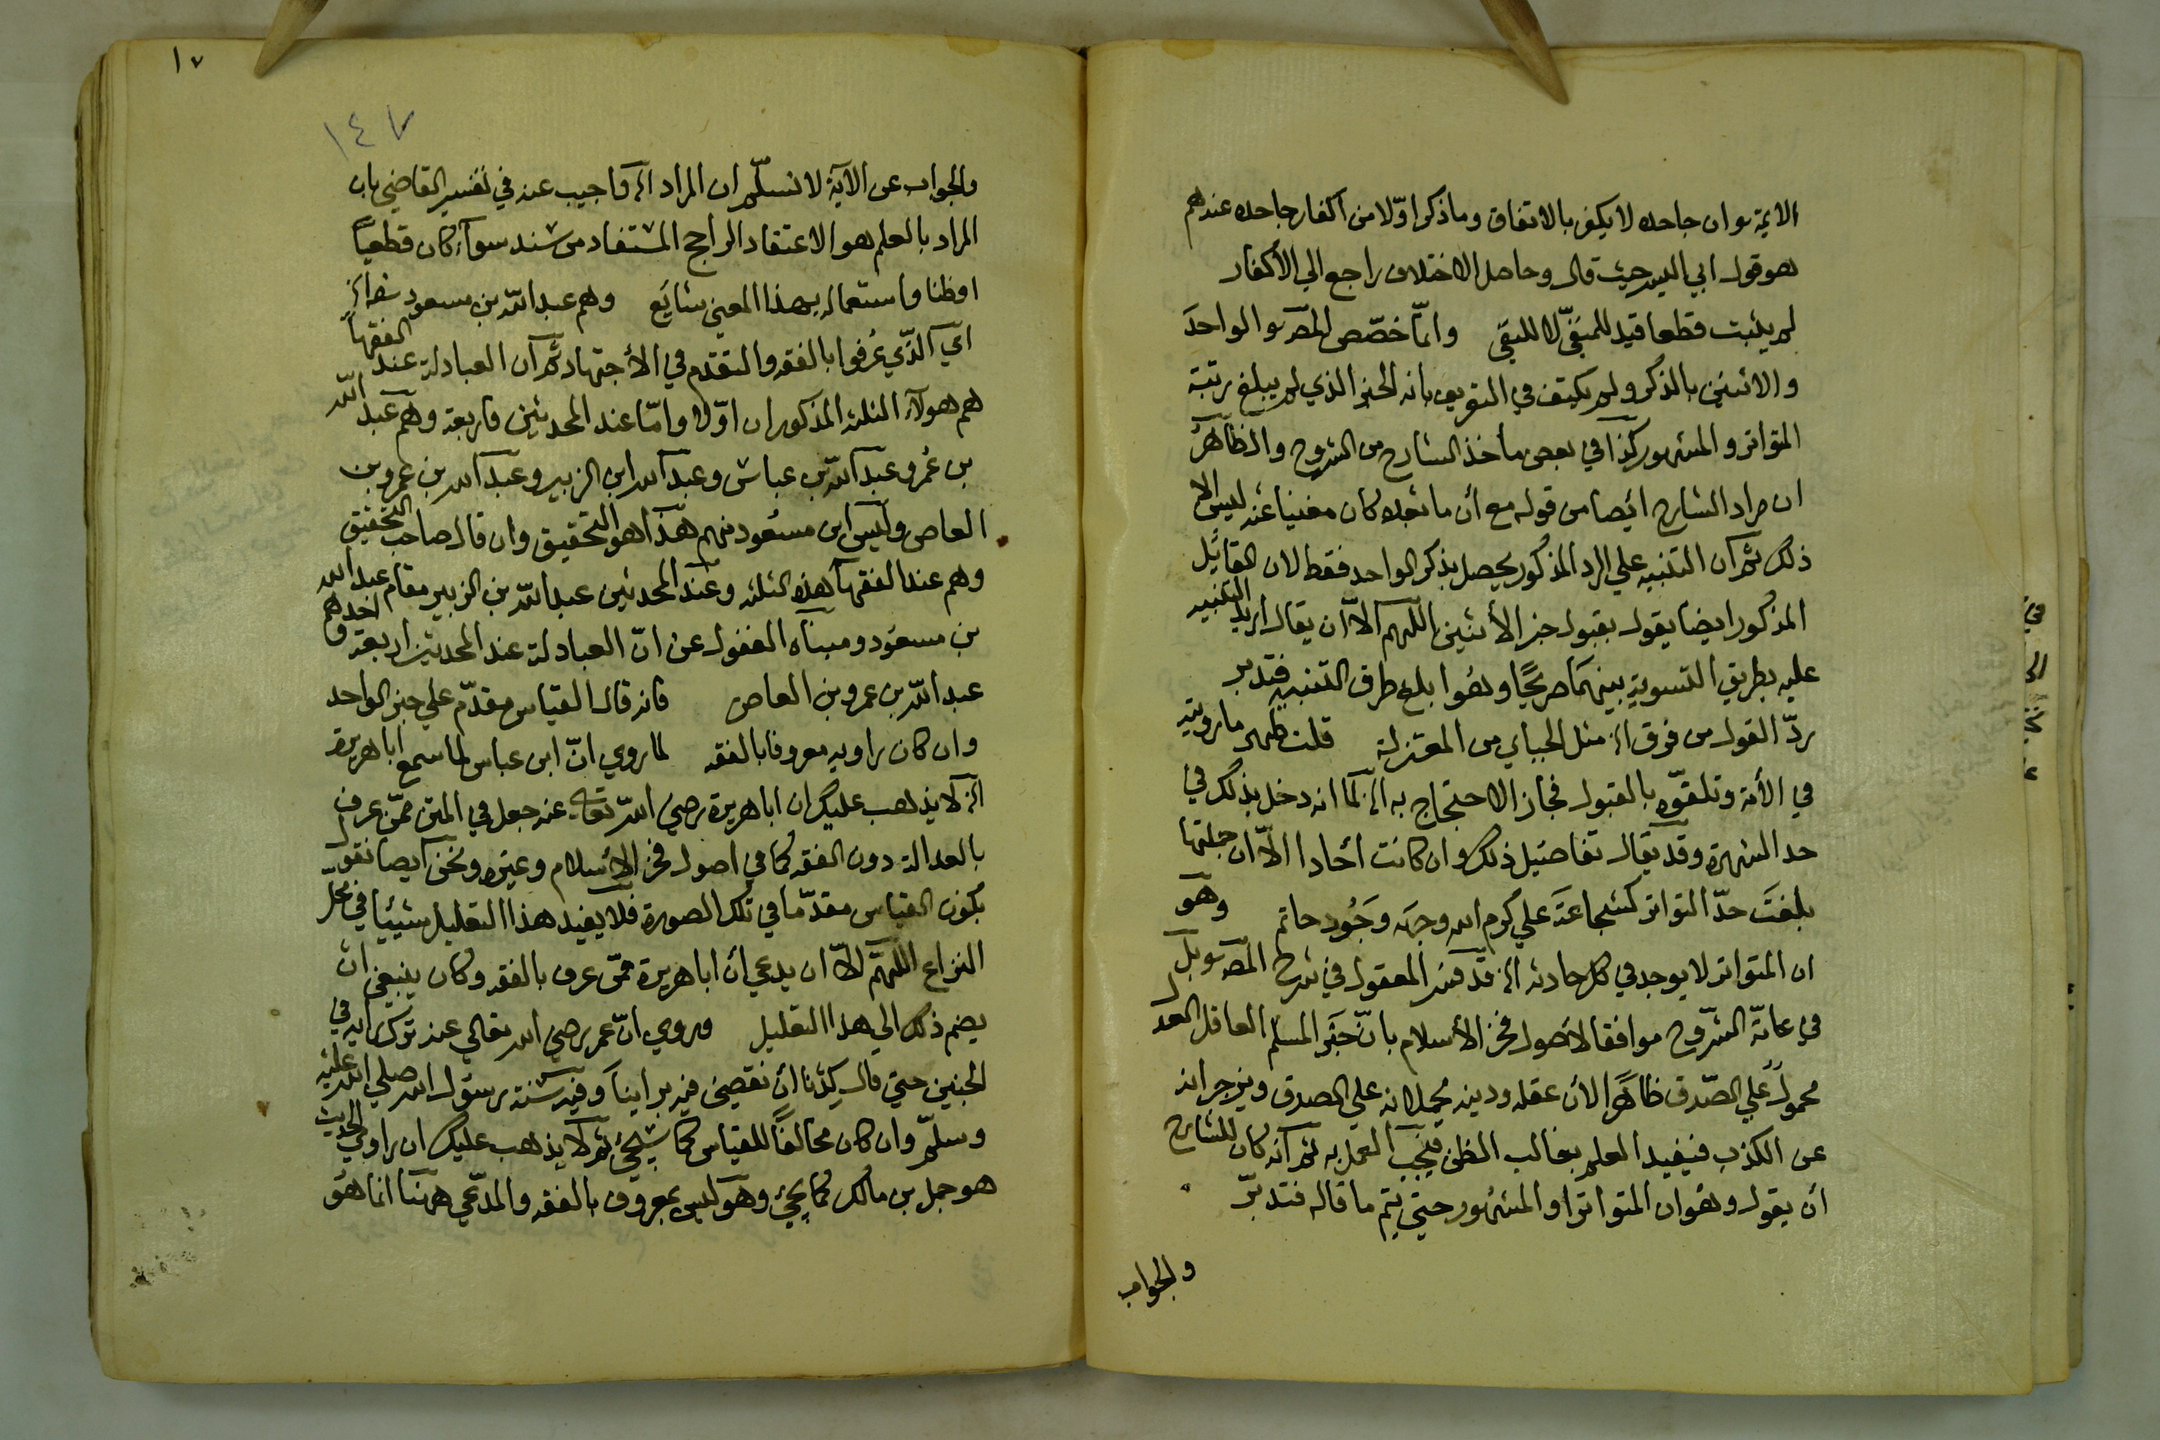 الايمة وان جاحده لا يكفر بالاتفاق وما ذكر اوّلا من اكفار جاحده عندهم
هو قول ابي اليسر حيث قال وحاصل الاختلاف راجع الي الأكفار
لم يثبت قطعا قيد للمنفيّ لا للنفي وانمّا خصّص المصـ و الواحدَ
والاثنين بالذكر ولم يكتف في التعريف بانه الخبر الذي لم يبلغ رتبة
المتواتر والمشهور كذا في بعض مأخذ الشارح من الشروح والظاهر
ان مراد الشارح ايضا من قوله مع أن ما بعده كان مغنيا عنه ليس الا
ذلك ثم ان التنبيه علي الرد المذكور يحصل بذكر الواحد فقط لان القائل
المذكور ايضا يقول بقبول خبر الأثنين اللّهم الاّ ان يقال اريد التنبيه
عليه بطريق التسوية بينهما صريحًا وهو ابلغ طرق التنبيه فتدبر
ردّ القول من فرق الخ مثل الجبائي من المعتزلة قلت ظهر ما رويته
في الأمة وتلقّوه بالقبول فجاز الاحتجاج به الخ كما انه دخل بذلك في
حد الشهرة وقد يقال تفاصيل ذلك وان كانت آحادا الاّ ان جملتها
بلغتَ حدّ التواتر كشجاعة علي كرم الله وجهه وجُود حاتم وهو
ان المتواتر لا يوجد في كل حادثة الخ قد فسر المعقول في شرح المصـ و بل
في عامّة الشّروح موافقا لاصول فخر الأسلام بانّ خبَر المسلم العاقل العدل
محمولٌ علي الصّدق ظاهرًا لأن عقله ودينه يحملانه علي الصدق ويزجرانه
عن الكذب فيفيد العلم بغالب الظن فيجب العمل به ثم انه كان للشارح
أن يقول وهو ان المتواتر او المشهور حتي يتم ما قاله فتدبّر
والجواب
١٧
١٤٧
والجواب عن الآية لا نسلّم ان المراد الخ واجيب عنه في تفسير القاضي بان
المراد بالعلم هو الاعتقاد الراجح المستفاد من سند سوآء كان قطعياً
او ظنا واستعماله بهذا المعني شايع وهم عبد اللّه بن مسعود الخ
اي الذّي عُرفوا بالفقه والتقدم في الأجتهاد ثم ان العبادلة عند الفقهاء
هم هولآء الثلثة المذكوران اوّلا وامّا عند المحدثين فاربعة وهم عبد اللّه
بن عُمر وعبد اللّه بن عباس وعبد الله ابن الزبير وعبد الله بن عمرو بن
العاص وليس ابن مسعود منهم هذا هو التحقيق وان قال صاحب التحقيق
وهم عند الفقهآء هذه الثلثه وعند المحدثين عبد اللّه بن الزبير مقام عبد الله
بن مسعود ومبناه الغفول عن انّ العبادلة عند المحدثين اربعة واحدهم
عبد اللّه بن عمرو بن العاص فانه قال القياس مقدّم علي خبر الواحد
وان كان راويه معروفا بالفقه لما روي انّ ابن عباس لما سمع ابا هريرة
الخ لا يذهب عليك ان ابا هريرة رضي اللّه تعالي عنه جعل في المتن ممّن عرف
بالعدالة دون الفقه كما في اصول فخر الاسلام وغيره ونحن ايضا نقول
بكون القياس مقدّما في تلك الصورة فلا يفيد هذا التعليل شيئيا في محلّ
النزاع اللّهمّ الاّ ان يدعي أن ابا هريرة ممّن عرف بالفقه وكان ينبغي ان
يضم ذلك الي هذا التعليل وروي انّ عمر رضي الله تعالي عنه ترك رايه في
الجنين حتي قال كدنا أن نقضي فيه براينا وفيه سنة رسول الله صلي الله عليه
وسلّم وان كان مخالفاً للقياس كما سيجئ ثم لا يذهب عليك ان راوي الحديث
هو حمل بن مالك كما يجئ وهو ليس بمعروف بالفقه والمدّعي ههنا انما هو